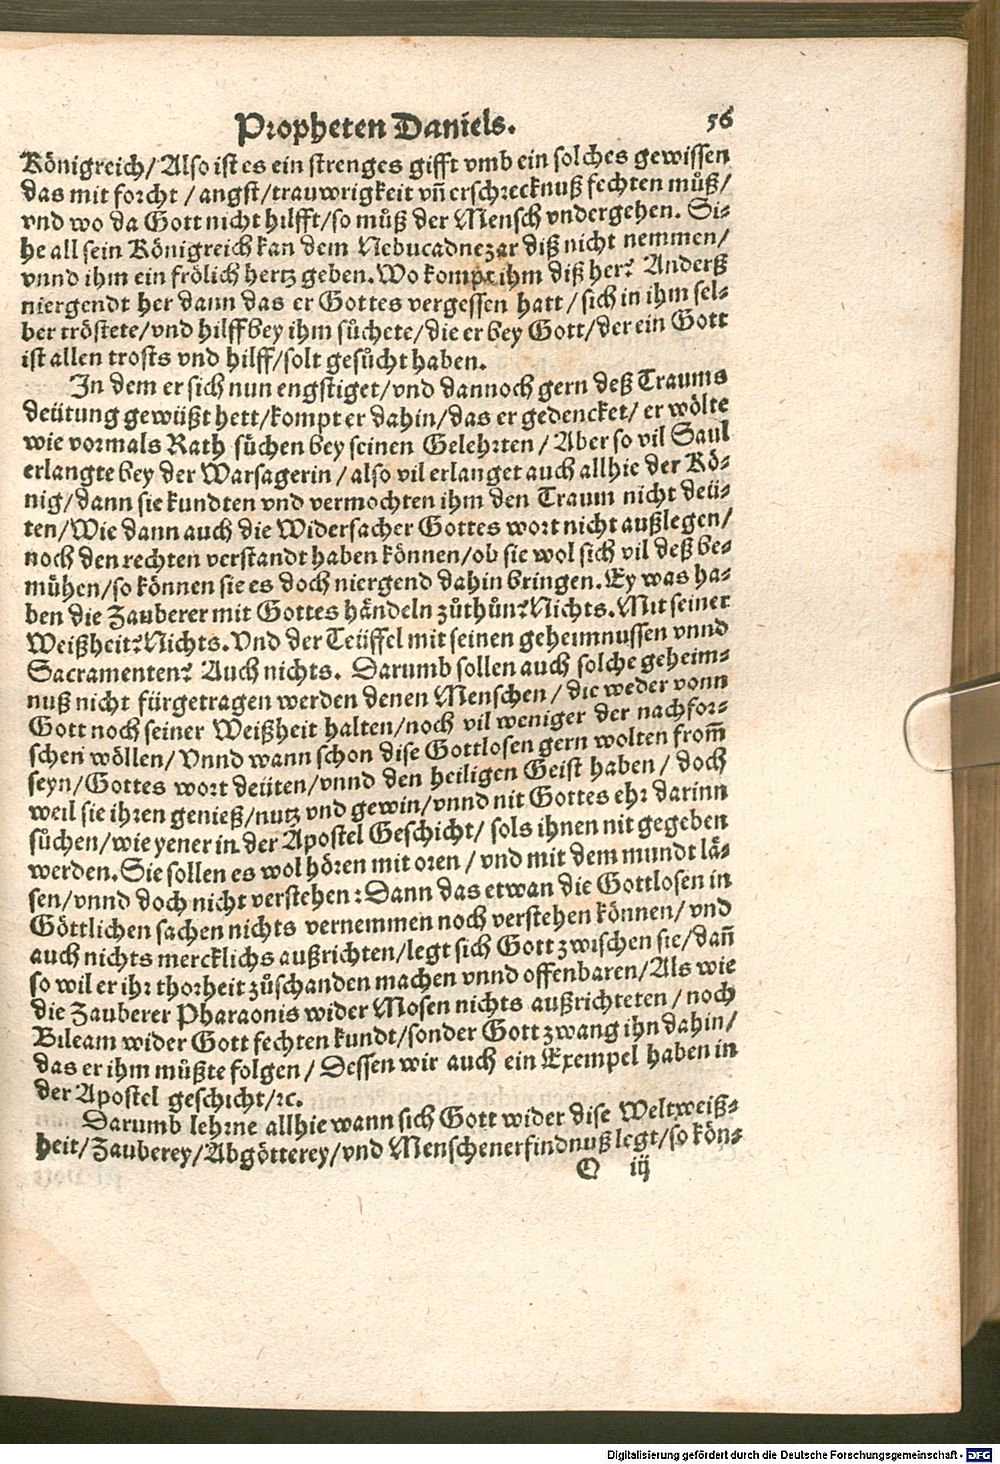 Propheten Daniels. 56
Königreich/ Also ist es ein strenges gifft vmb ein solches gewissen
das mit forcht / angst/ trauwrigkeit vñ erschrecknuß fechten můß/
vnd wo da Gott nicht hilfft/ so můß der Mensch vndergehen. Si-
he all sein Königreich kan dem Nebucadnezar diß nicht nemmen/
vnnd ihm ein frölich hertz geben. Wo kompt ihm diß her? Anderß
niergendt her dann das er Gottes vergessen hatt / sich in ihm sel-
ber tröstete/ vnd hilff bey ihm sůchete/ die er bey Gott/ der ein Gott
ist allen trosts vnd hilff/ solt gesůcht haben.
In dem er sich nun engstiget/ vnd dannoch gern deß Traums
deütung gewüßt hett/ kompt er dahin/ das er gedencket/ er wölte
wie vormals Rath sůchen bey seinen Gelehrten / Aber so vil Saul
erlangte bey der Warsagerin / also vil erlanget auch allhie der Kö-
nig/ dann sie kundten vnd vermochten ihm den Traum nicht deü-
ten/ Wie dann auch die Widersacher Gottes wort nicht außlegen/
noch den rechten verstandt haben können/ ob sie wol sich vil deß be-
mühen/ so können sie es doch niergend dahin bringen. Ey was ha-
ben die Zauberer mit Gottes händeln zůthůn? Nichts. Mit seiner
Weißheit? Nichts. Vnd der Teüffel mit seinen geheimnussen vnnd
Sacramenten? Auch nichts. Darumb sollen auch solche geheim-
nuß nicht fürgetragen werden denen Menschen / die weder vonn
Gott noch seiner Weißheit halten/ noch vil weniger der nachfor-
schen wöllen/ Vnnd wann schon dise Gottlosen gern wolten from̃
seyn/ Gottes wort deüten/ vnnd den heiligen Geist haben / doch
weil sie ihren genieß/ nutz vnd gewin/ vnnd nit Gottes ehr darinn
sůchen/ wie yener in der Apostel Geschicht/ sols ihnen nit gegeben
werden. Sie sollen es wol hören mit oren / vnd mit dem mundt lä-
sen/ vnnd doch nicht verstehen: Dann das etwan die Gottlosen in
Göttlichen sachen nichts vernemmen noch verstehen können/ vnd
auch nichts mercklichs außrichten/ legt sich Gott zwischen sie/ dañ
so wil er ihr thorheit zůschanden machen vnnd offenbaren/ Als wie
die Zauberer Pharaonis wider Mosen nichts außrichteten / noch
Bileam wider Gott fechten kundt/ sonder Gott zwang ihn dahin/
das er ihm můßte folgen / Dessen wir auch ein Exempel haben in
der Apostel geschicht/ ꝛc.
Darumb lehrne allhie wann sich Gott wider dise Weltweiß-
heit/ Zauberey/ Abgötterey/ vnd Menschenerfindnuß legt/ so kön-
Q iij
Digitalisierung gefördert durch die Deutsche Forschungsgemeinschaft - DFG